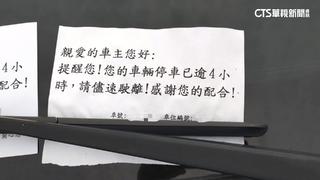 CTS華視新聞
親愛的車主您好:
提醒您!您的車輛停車已逾4小
時，請儘速駛離!感謝您的配合!
車號:
車位編號:
4小
合!